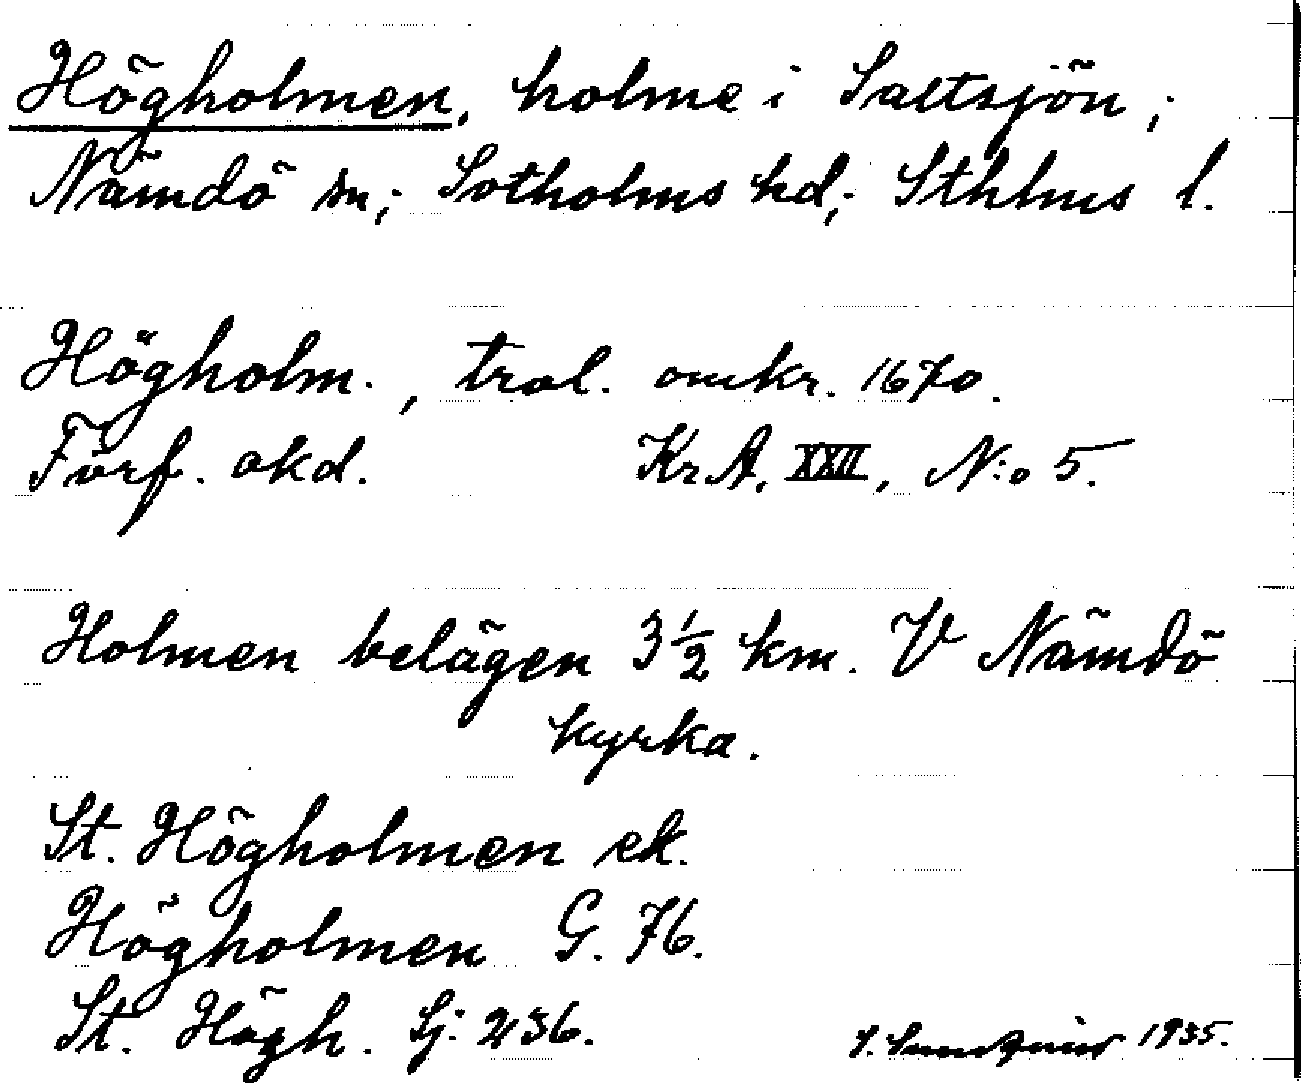 Högholmen, holme i Saltsjön;
Nämdö sn; Sotholms hd; Sthlms l.
Högholm., trol. omkr. 1670.
Förf. okd. Kr.A. XXII, N:o 5.
Holmen belägen 3 1/2 km. V Nämdö
kyrka.
St. Högholmen ek.
Högholmen G. 76.
St. Högh. Sj: 236.
1935.